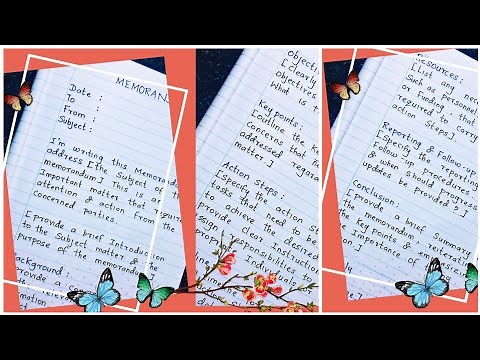 MEMORAN
Date :
To :
From :
Subject :
I'm writing this Memorand
address [the Subject of the
memorandum] This is
Important matter that requir
attention & action from the
concerned parties
[provide a brief Introduction
to the Subject matter & the
purpose of the memorand
ackground :
provide a co
relev
mation
ct
objectiv
[clearly
objectives
What is t
Key points :
[outline the key
concerns that
addressed regard
matter.]
Action Steps :
[Specify the action st
tasks that need to be
to achieve the desired
provide clear Instruction
ssign responsibilities to
Individuals
Resources :
[List any nec
Such as personnel
or funding, that
required to carry
action Steps]
Reporting & Follow-up
[Specify the reporting
Follow up procedures
& when should progress
updates be provided ?]
Conclusion :
[provide a brief Summary
the memorandum, reiterati
the Key points & emphas
Importance of